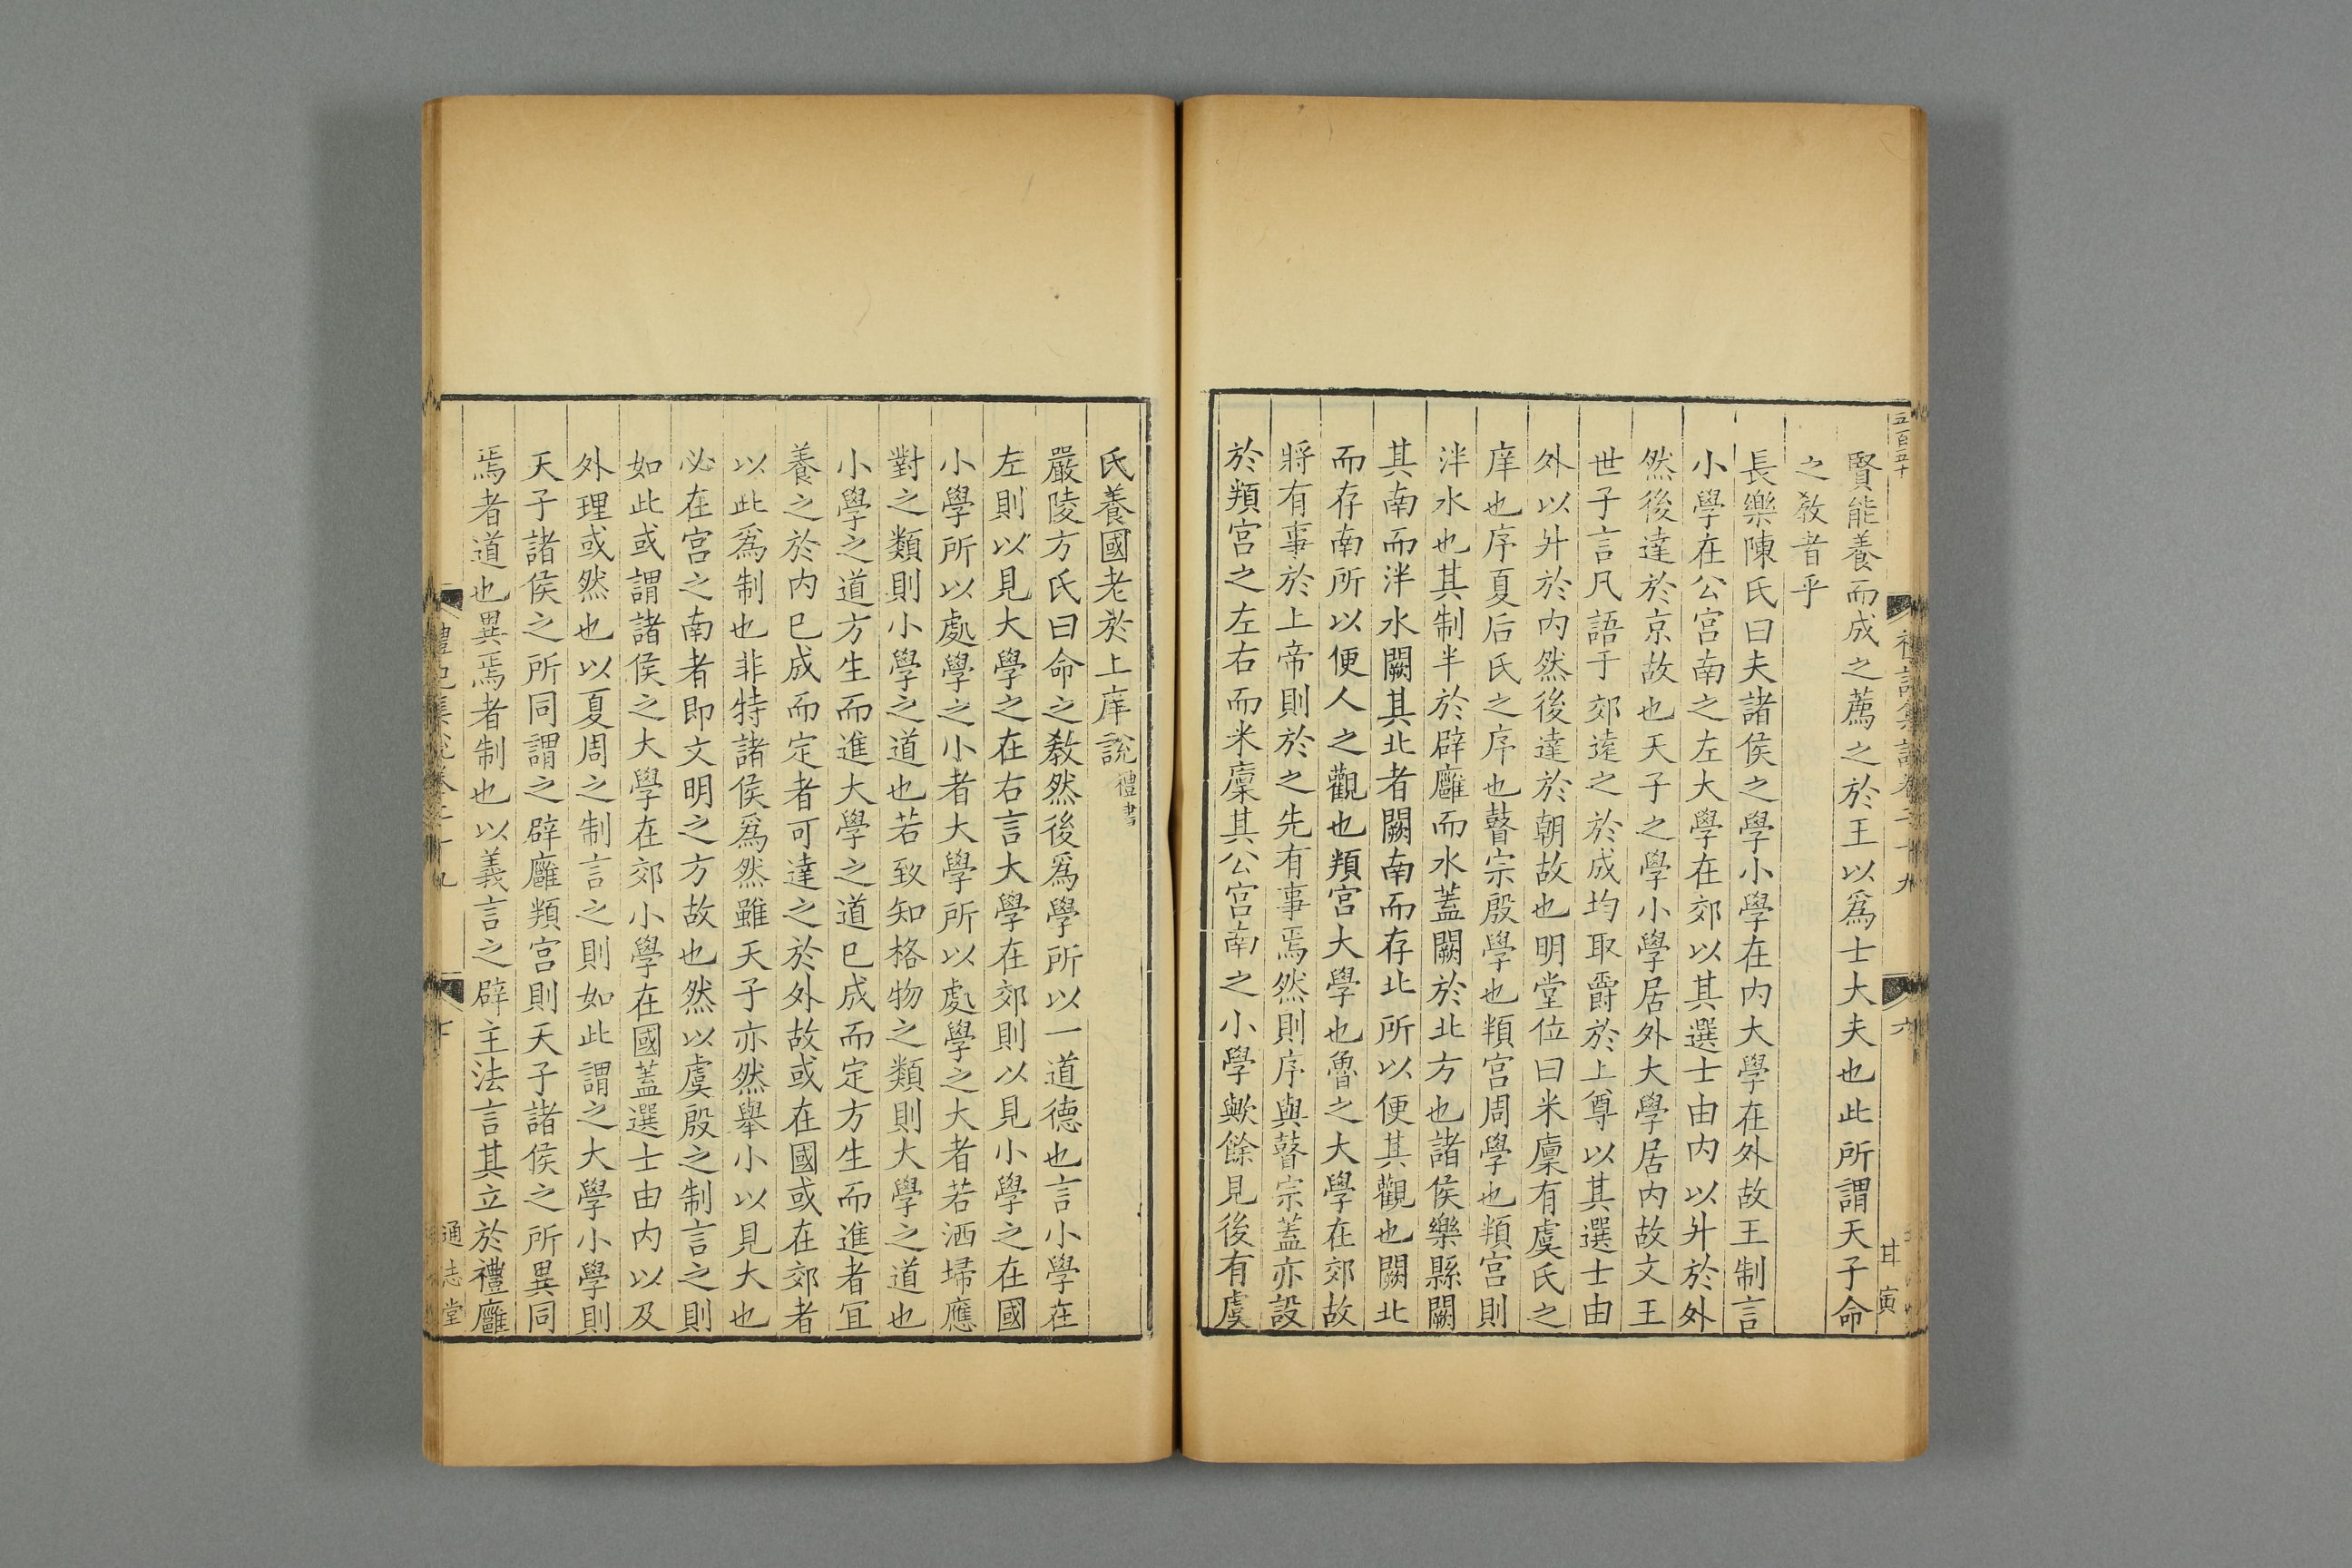 五百五十
賢能養而成之薦之於王以爲士大夫也此所謂天子命
之敎者乎
長樂陳氏曰夫諸侯之學小學在內大學在外故王制言
小學在公宮南之左大學在郊以其選士由內以升於外
然後達於京故也天子之學小學居外大學居內故文王
世子言凡語于郊逺之於成均取爵於上尊以其選士由
外以升於內然後達於朝故也明堂位曰米廩有虞氏之
庠也序夏后氏之序也瞽宗殷學也頖宮周學也頖宮則
泮水也其制半於辟廱而水蓋闕於北方也諸侯樂縣闕
其南而泮水闕其北者闕南而存北所以便其觀也闕北
而存南所以便人之觀也頖宮大學也魯之大學在郊故
將有事於上帝則於之先有事焉然則序與瞽宗蓋亦設
於頖宮之左右而米廩其公宮南之小學歟餘見後有虞
六
甘寅
氏養國老於上庠說禮書
嚴陵方氏曰命之敎然後爲學所以一道德也言小學在
左則以見大學之在右言大學在郊則以見小學之在國
小學所以處學之小者大學所以處學之大者若洒埽應
對之類則小學之道也若致知格物之類則大學之道也
小學之道方生而進大學之道已成而定方生而進者宜
養之於內已成而定者可達之於外故或在國或在郊者
以此爲制也非特諸侯爲然雖天子亦然舉小以見大也
必在宮之南者即文明之方故也然以虞殷之制言之則
如此或謂諸侯之大學在郊小學在國蓋選士由內以及
外理或然也以夏周之制言之則如此謂之大學小學則
天子諸侯之所同謂之辟廱頖宮則天子諸侯之所異同
焉者道也異焉者制也以義言之辟主法言其立於禮廱
禮記集說卷三十九
通志堂